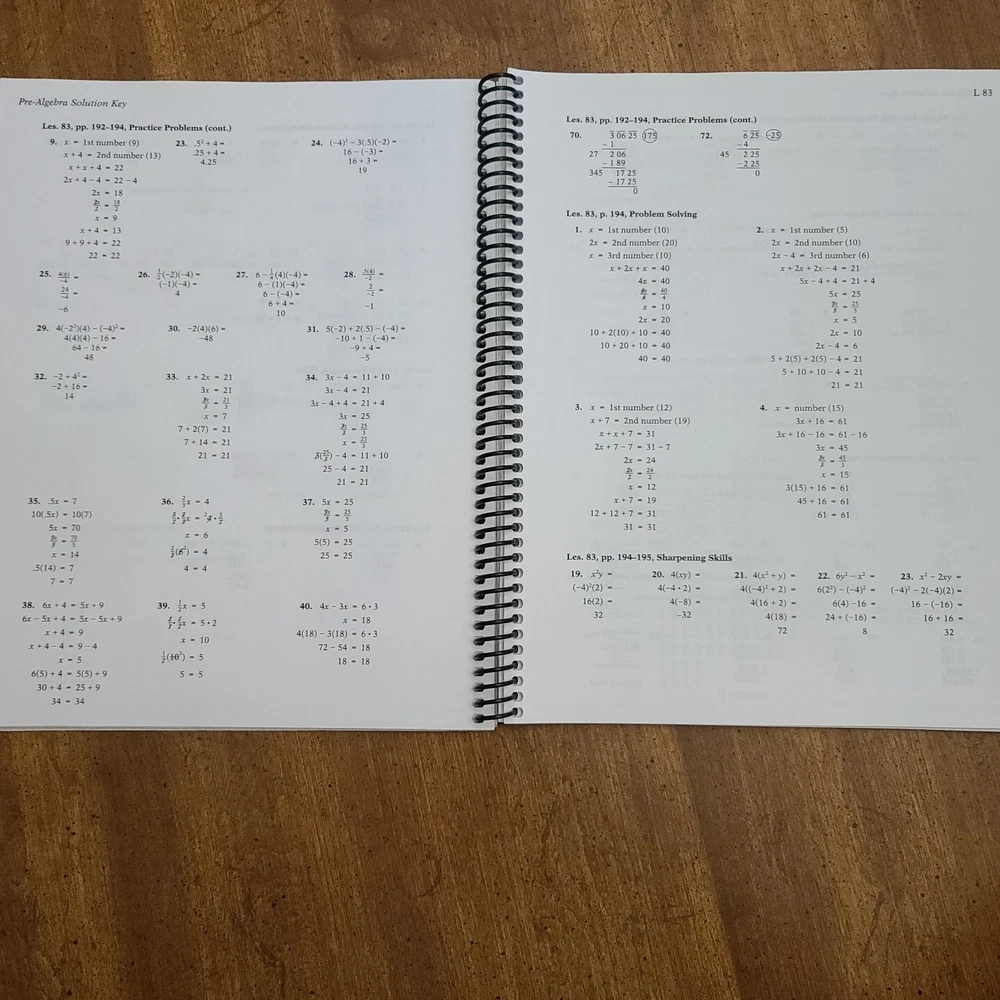 Pre-Algebra Solution Key
Les. 83, pp. 192–194, Practice Problems (cont.)
9. x = 1st number (9)
x + 4 = 2nd number (13)
x + x + 4 = 22
2x + 4 – 4 = 22 – 4
2x = 18
2x/2 = 18/2
x = 9
x + 4 = 13
9 + 9 + 4 = 22
22 = 22
23. .5² + 4 =
.25 + 4 =
4.25
24. (–4)² – 3(.5)(–2) =
16 – (–3) =
16 + 3 =
19
25. 4(6)/–4 =
24/–4 =
–6
26. 1/2(–2)(–4) =
(–1)(–4) =
4
27. 6 – 1/4(4)(–4) =
6 – (1)(–4) =
6 – (–4) =
6 + 4 =
10
28. .5(4)/–2 =
2/–2 =
–1
29. 4(–2²)(4) – (–4)² =
4(4)(4) – 16 =
64 – 16 =
48
30. –2(4)(6) =
–48
31. 5(–2) + 2(.5) – (–4) =
–10 + 1 – (–4) =
–9 + 4 =
–5
32. –2 + 4² =
–2 + 16 =
14
33. x + 2x = 21
3x = 21
3x/3 = 21/3
x = 7
7 + 2(7) = 21
7 + 14 = 21
21 = 21
34. 3x – 4 = 11 + 10
3x – 4 = 21
3x – 4 + 4 = 21 + 4
3x = 25
3x/3 = 25/3
x = 25/3
3(25/3) – 4 = 11 + 10
25 – 4 = 21
21 = 21
35. .5x = 7
10(.5x) = 10(7)
5x = 70
5x/5 = 70/5
x = 14
.5(14) = 7
7 = 7
36. 2/3x = 4
3/2 · 2/3x = ²4 · 3/2
x = 6
2/3(6²) = 4
4 = 4
37. 5x = 25
5x/5 = 25/5
x = 5
5(5) = 25
25 = 25
38. 6x + 4 = 5x + 9
6x – 5x + 4 = 5x – 5x + 9
x + 4 = 9
x + 4 – 4 = 9 – 4
x = 5
6(5) + 4 = 5(5) + 9
30 + 4 = 25 + 9
34 = 34
39. 1/2x = 5
2/1 · 1/2x = 5 · 2
x = 10
1/2(10⁵) = 5
5 = 5
40. 4x – 3x = 6 · 3
x = 18
4(18) – 3(18) = 6 · 3
72 – 54 = 18
18 = 18
L 83
Les. 83, pp. 192–194, Practice Problems (cont.)
70. 3 06 25 175
– 1
27 2 06
– 1 89
345 17 25
– 17 25
0
72. 6 25 –25
– 4
45 2 25
– 2 25
0
Les. 83, p. 194, Problem Solving
1. x = 1st number (10)
2x = 2nd number (20)
x = 3rd number (10)
x + 2x + x = 40
4x = 40
4x/4 = 40/4
x = 10
2x = 20
10 + 2(10) + 10 = 40
10 + 20 + 10 = 40
40 = 40
2. x = 1st number (5)
2x = 2nd number (10)
2x – 4 = 3rd number (6)
x + 2x + 2x – 4 = 21
5x – 4 + 4 = 21 + 4
5x = 25
5x/5 = 25/5
x = 5
2x = 10
2x – 4 = 6
5 + 2(5) + 2(5) – 4 = 21
5 + 10 + 10 – 4 = 21
21 = 21
3. x = 1st number (12)
x + 7 = 2nd number (19)
x + x + 7 = 31
2x + 7 – 7 = 31 – 7
2x = 24
2x/2 = 24/2
x = 12
x + 7 = 19
12 + 12 + 7 = 31
31 = 31
4. x = number (15)
3x + 16 = 61
3x + 16 – 16 = 61 – 16
3x = 45
3x/3 = 45/3
x = 15
3(15) + 16 = 61
45 + 16 = 61
61 = 61
Les. 83, pp. 194–195, Sharpening Skills
19. x²y =
(–4)²(2) =
16(2) =
32
20. 4(xy) =
4(–4 · 2) =
4(–8) =
–32
21. 4(x² + y) =
4((–4)² + 2) =
4(16 + 2) =
4(18) =
72
22. 6y² – x² =
6(2²) – (–4)² =
6(4) –16 =
24 + (–16) =
8
23. x² – 2xy =
(–4)² – 2(–4)(2) =
16 – (–16) =
16 + 16 =
32